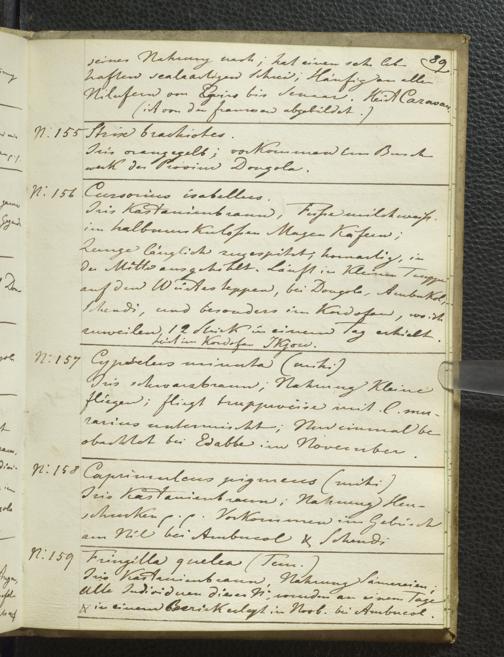 89
seines Nahrung nach; hat einen sehr leb
haften scalaartigen Schrei; Häufig an allen
Nilufern von bis Sennar. Heist Caravan
(ist von die francon abgebildet.)
N: 155 Strix brachiotes.
Iris orangegelb; vorkommen im Busch
werk der Provinz Dongola.
N: 156 Cursorius isabellus.
Iris Kastanienbraun, Füße milchweiß.
im halbverschlossen Magen Käfern;
Zunge länglich zugespitzt, hornartig, in
der Mitte ausgehöhlt. Läuft in kleinen Truppen
auf den Wüstesteppen, bei Dongola Ambukol,
Schendi, und besonders im Kordofan, wo ich
zuweilen, 12 Stück in einem Tag erhielt.
heist im Kordofan
N: 157 Cypselus minuta (mihi)
Iris schwarzbraun; Nahrung Kleine
flieger; fliegt truppweise mit C. mu-
rarius untermischt; Nur einmal be
obachtet bei Edabbe im November.
N: 158 Caprimulcus pigmeus (mihi)
Iris Kastanienbraun; Nahrung Heu-
schrecken p. p. Vorkommen im Gebüsch
am Nil bei Ambucol & Schendi
N: 159 Fringilla quelea (Tem.)
Iris Kastanienbraun, Nahrung Sämereien;
alle Individuen dieser Art wurden an einem Tage
& in einem Bezirk erlegt im Novb. bei Ambucol.